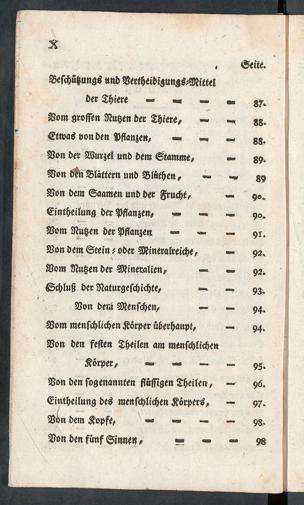 X
Seite.
Beschützungs und Vertheidigungs-Mittel
der Thiere — — — — 87.
Vom grossen Nutzen der Thiere, — — 88.
Etwas von den Pflanzen, — — — 88.
Von der Wurzel und dem Stamme, — 89.
Von den Blättern und Blüthen, — — 89
Von dem Saamen und der Frucht, — 90.
Eintheilung der Pflanzen, — — — 90.
Vom Nutzen der Pflanzen — — — 91.
Von dem Stein- oder Mineralreiche, — 92.
Vom Nutzen der Mineralien, — — 92.
Schluß der Naturgeschichte, — — 93.
Von dem Menschen, — — 94.
Vom menschlichen Körper überhaupt, — 94.
Von den festen Theilen am menschlichen
Körper, — — — — 95.
Von den sogenannten flüssigen Theilen, — 96.
Eintheilung des menschlichen Körpers, — 97.
Von dem Kopfe, — — — — 98.
Von den fünf Sinnen, — — — 98